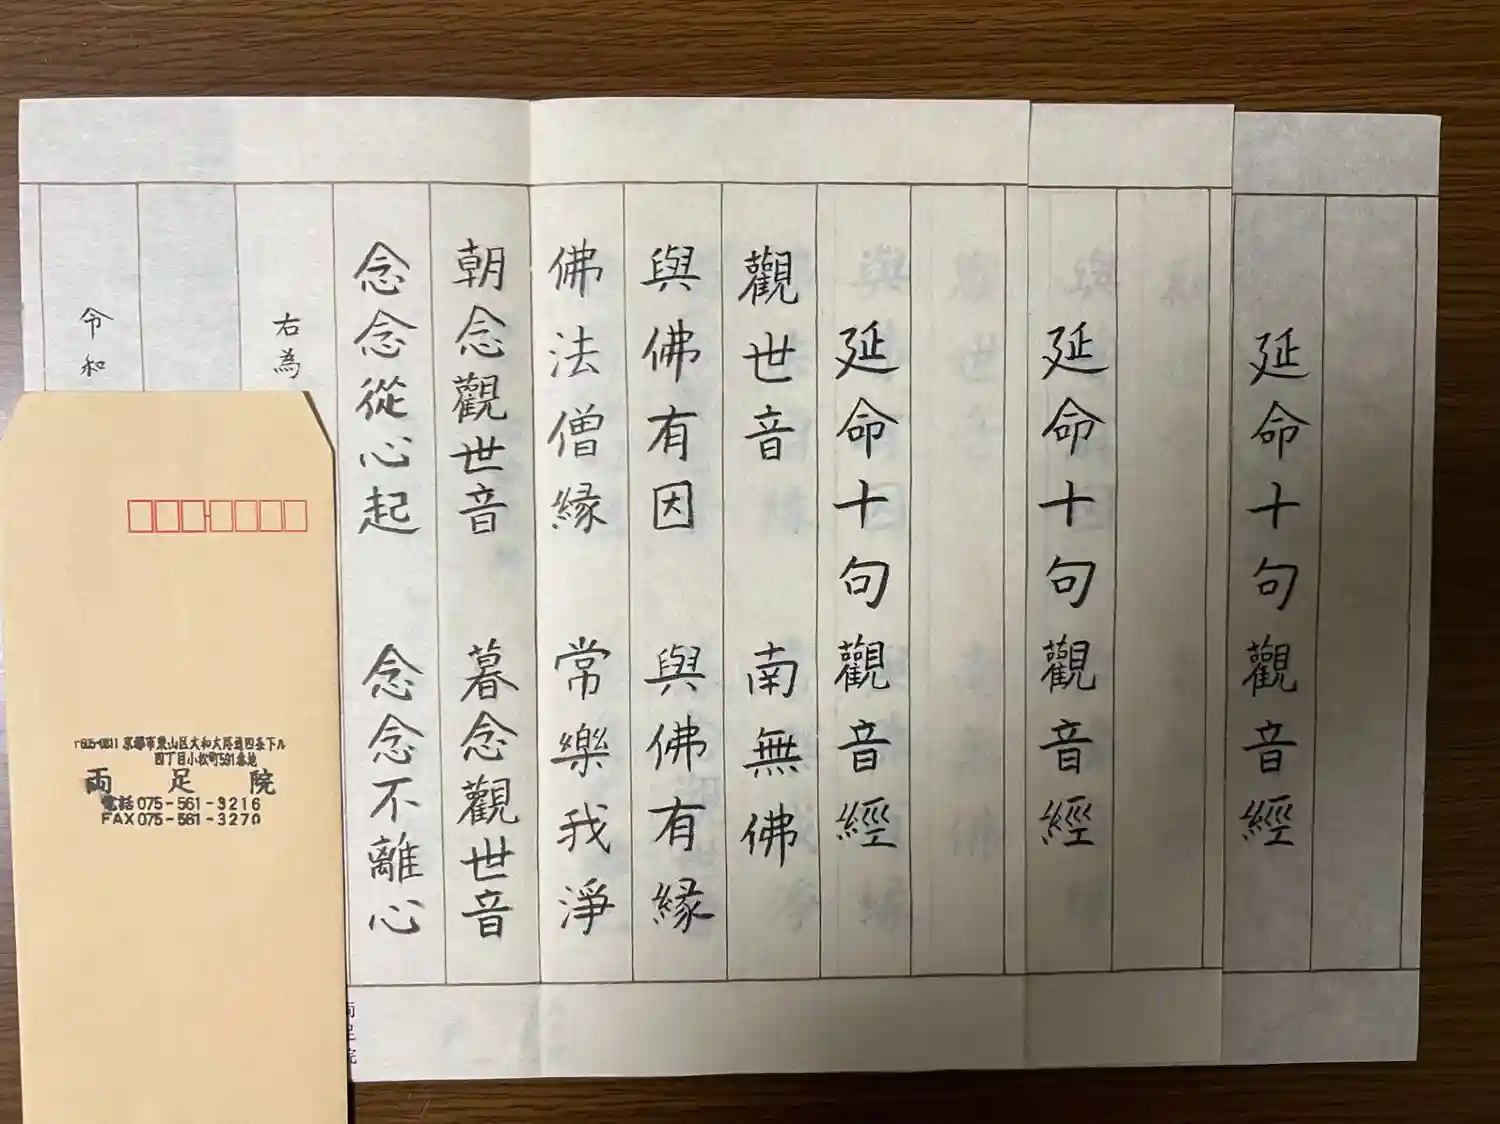 延命十句觀音經
延命十句觀音經
延命十句觀音經
觀世音 南無佛
與佛有因 與佛有縁
佛法僧縁 常樂我淨
朝念觀世音 暮念觀世音
念念從心起 念念不離心
右為
令和
両足院
〒605-0811 京都市東山区大和大路通四条下ル
四丁目小松町591番地
両足院
電話075-561-3216
FAX075-561-3270